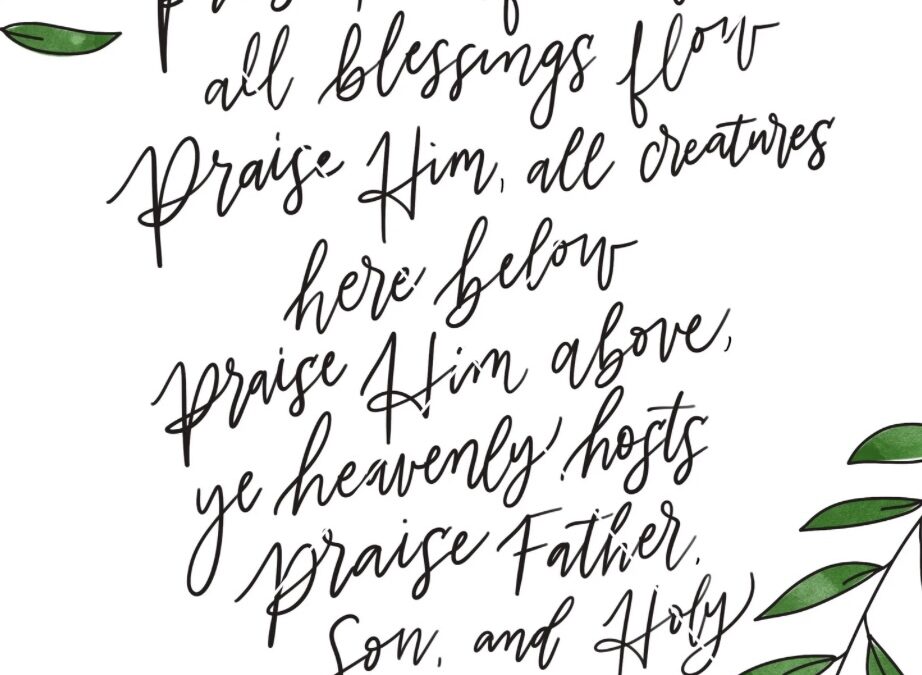 all blessings flow
Praise Him, all creatures
here below
praise Him above,
ye heavenly hosts
praise Father,
Son, and Holy